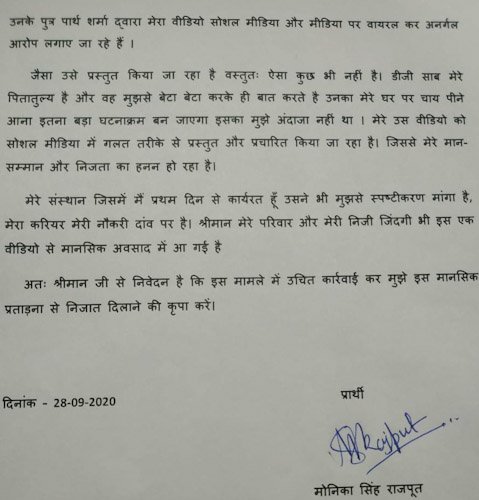 उनके पुत्र पार्थ शर्मा द्वारा मेरा वीडियो सोशल मीडिया और मीडिया पर वायरल कर अनर्गल
आरोप लगाए जा रहे हैं ।
जैसा उसे प्रस्तुत किया जा रहा है वस्तुतः ऐसा कुछ भी नहीं है। डीजी साब मेरे
पितातुल्य है और वह मुझसे बेटा बेटा करके ही बात करते है उनका मेरे घर पर चाय पीने
आना इतना बड़ा घटनाक्रम बन जाएगा इसका मुझे अंदाजा नहीं था । मेरे उस वीडियो को
सोशल मीडिया में गलत तरीके से प्रस्तुत और प्रचारित किया जा रहा है। जिससे मेरे मान-
सम्मान और निजता का हनन हो रहा है।
मेरे संस्थान जिसमें मैं प्रथम दिन से कार्यरत हूँ उसने भी मुझसे स्पष्टीकरण मांगा है,
मेरा करियर मेरी नौकरी दांव पर है। श्रीमान मेरे परिवार और मेरी निजी जिंदगी भी इस एक
वीडियो से मानसिक अवसाद में आ गई है
अतः श्रीमान जी से निवेदन है कि इस मामले में उचित कार्रवाई कर मुझे इस मानसिक
प्रताड़ना से निजात दिलाने की कृपा करें।
प्रार्थी
दिनांक - 28-09-2020
Rajput
मोनिका सिंह राजपूत